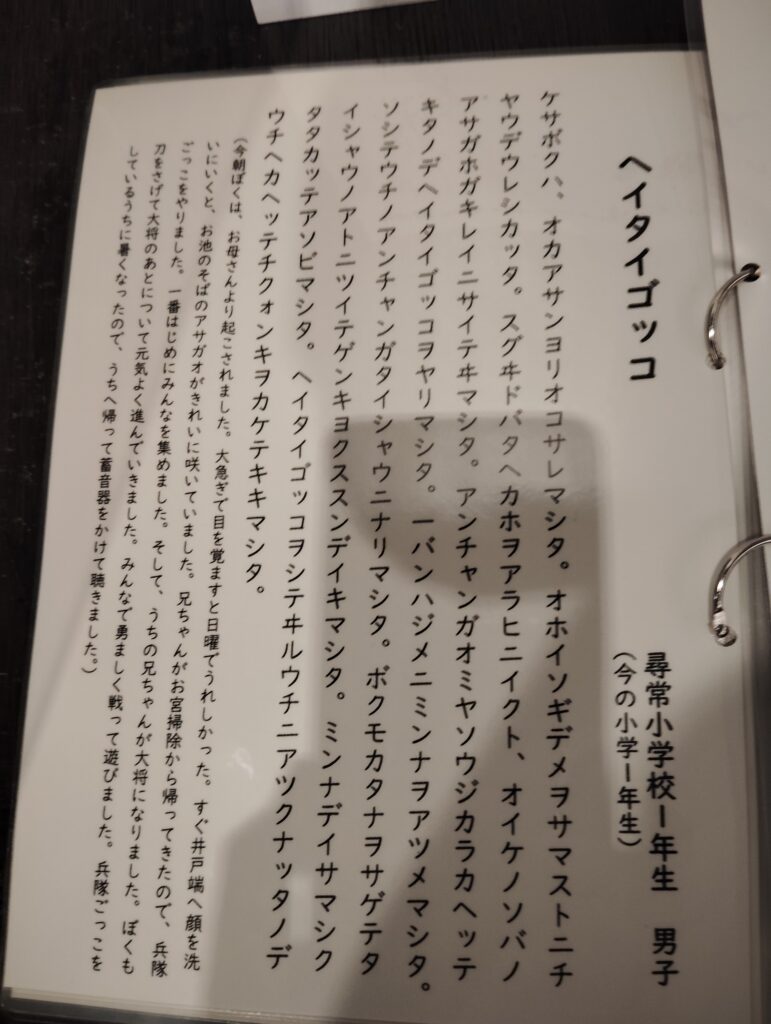 ヘイタイゴッコ
尋常小学校1年生　男子
(今の小学1年生)
ケサボクハ、オカアサンヨリオコサレマシタ。オホイソギデメヲサマストニチ
ヤウデウレシカッタ。スグヰドバタヘカホヲアラヒニイクト、オイケノソバノ
アサガホガキレイニサイテヰマシタ。アンチャンガオミヤソウジカラカヘッテ
キタノデヘイタイゴッコヲヤリマシタ。一バンハジメニミンナヲアツメマシタ。
ソシテウチノアンチャンガタイシャウニナリマシタ。ボクモカタナヲサゲテタ
イシャウノアトニツイテゲンキヨクススンデイキマシタ。ミンナデイサマシク
タタカッテアソビマシタ。ヘイタイゴッコヲシテヰルウチニアツクナッタノデ
ウチヘカヘッテチクォンキヲカケテキキマシタ。
(今朝ぼくは、お母さんより起こされました。大急ぎで目を覚ますと日曜でうれしかった。すぐ井戸端へ顔を洗
いにいくと、お池のそばのアサガオがきれいに咲いていました。兄ちゃんがお宮掃除から帰ってきたので、兵隊
ごっこをやりました。一番はじめにみんなを集めました。そして、うちの兄ちゃんが大将になりました。ぼくも
刀をさげて大将のあとについて元気よく進んでいきました。みんなで勇ましく戦って遊びました。兵隊ごっこを
しているうちに暑くなったので、うちへ帰って蓄音器をかけて聴きました。)